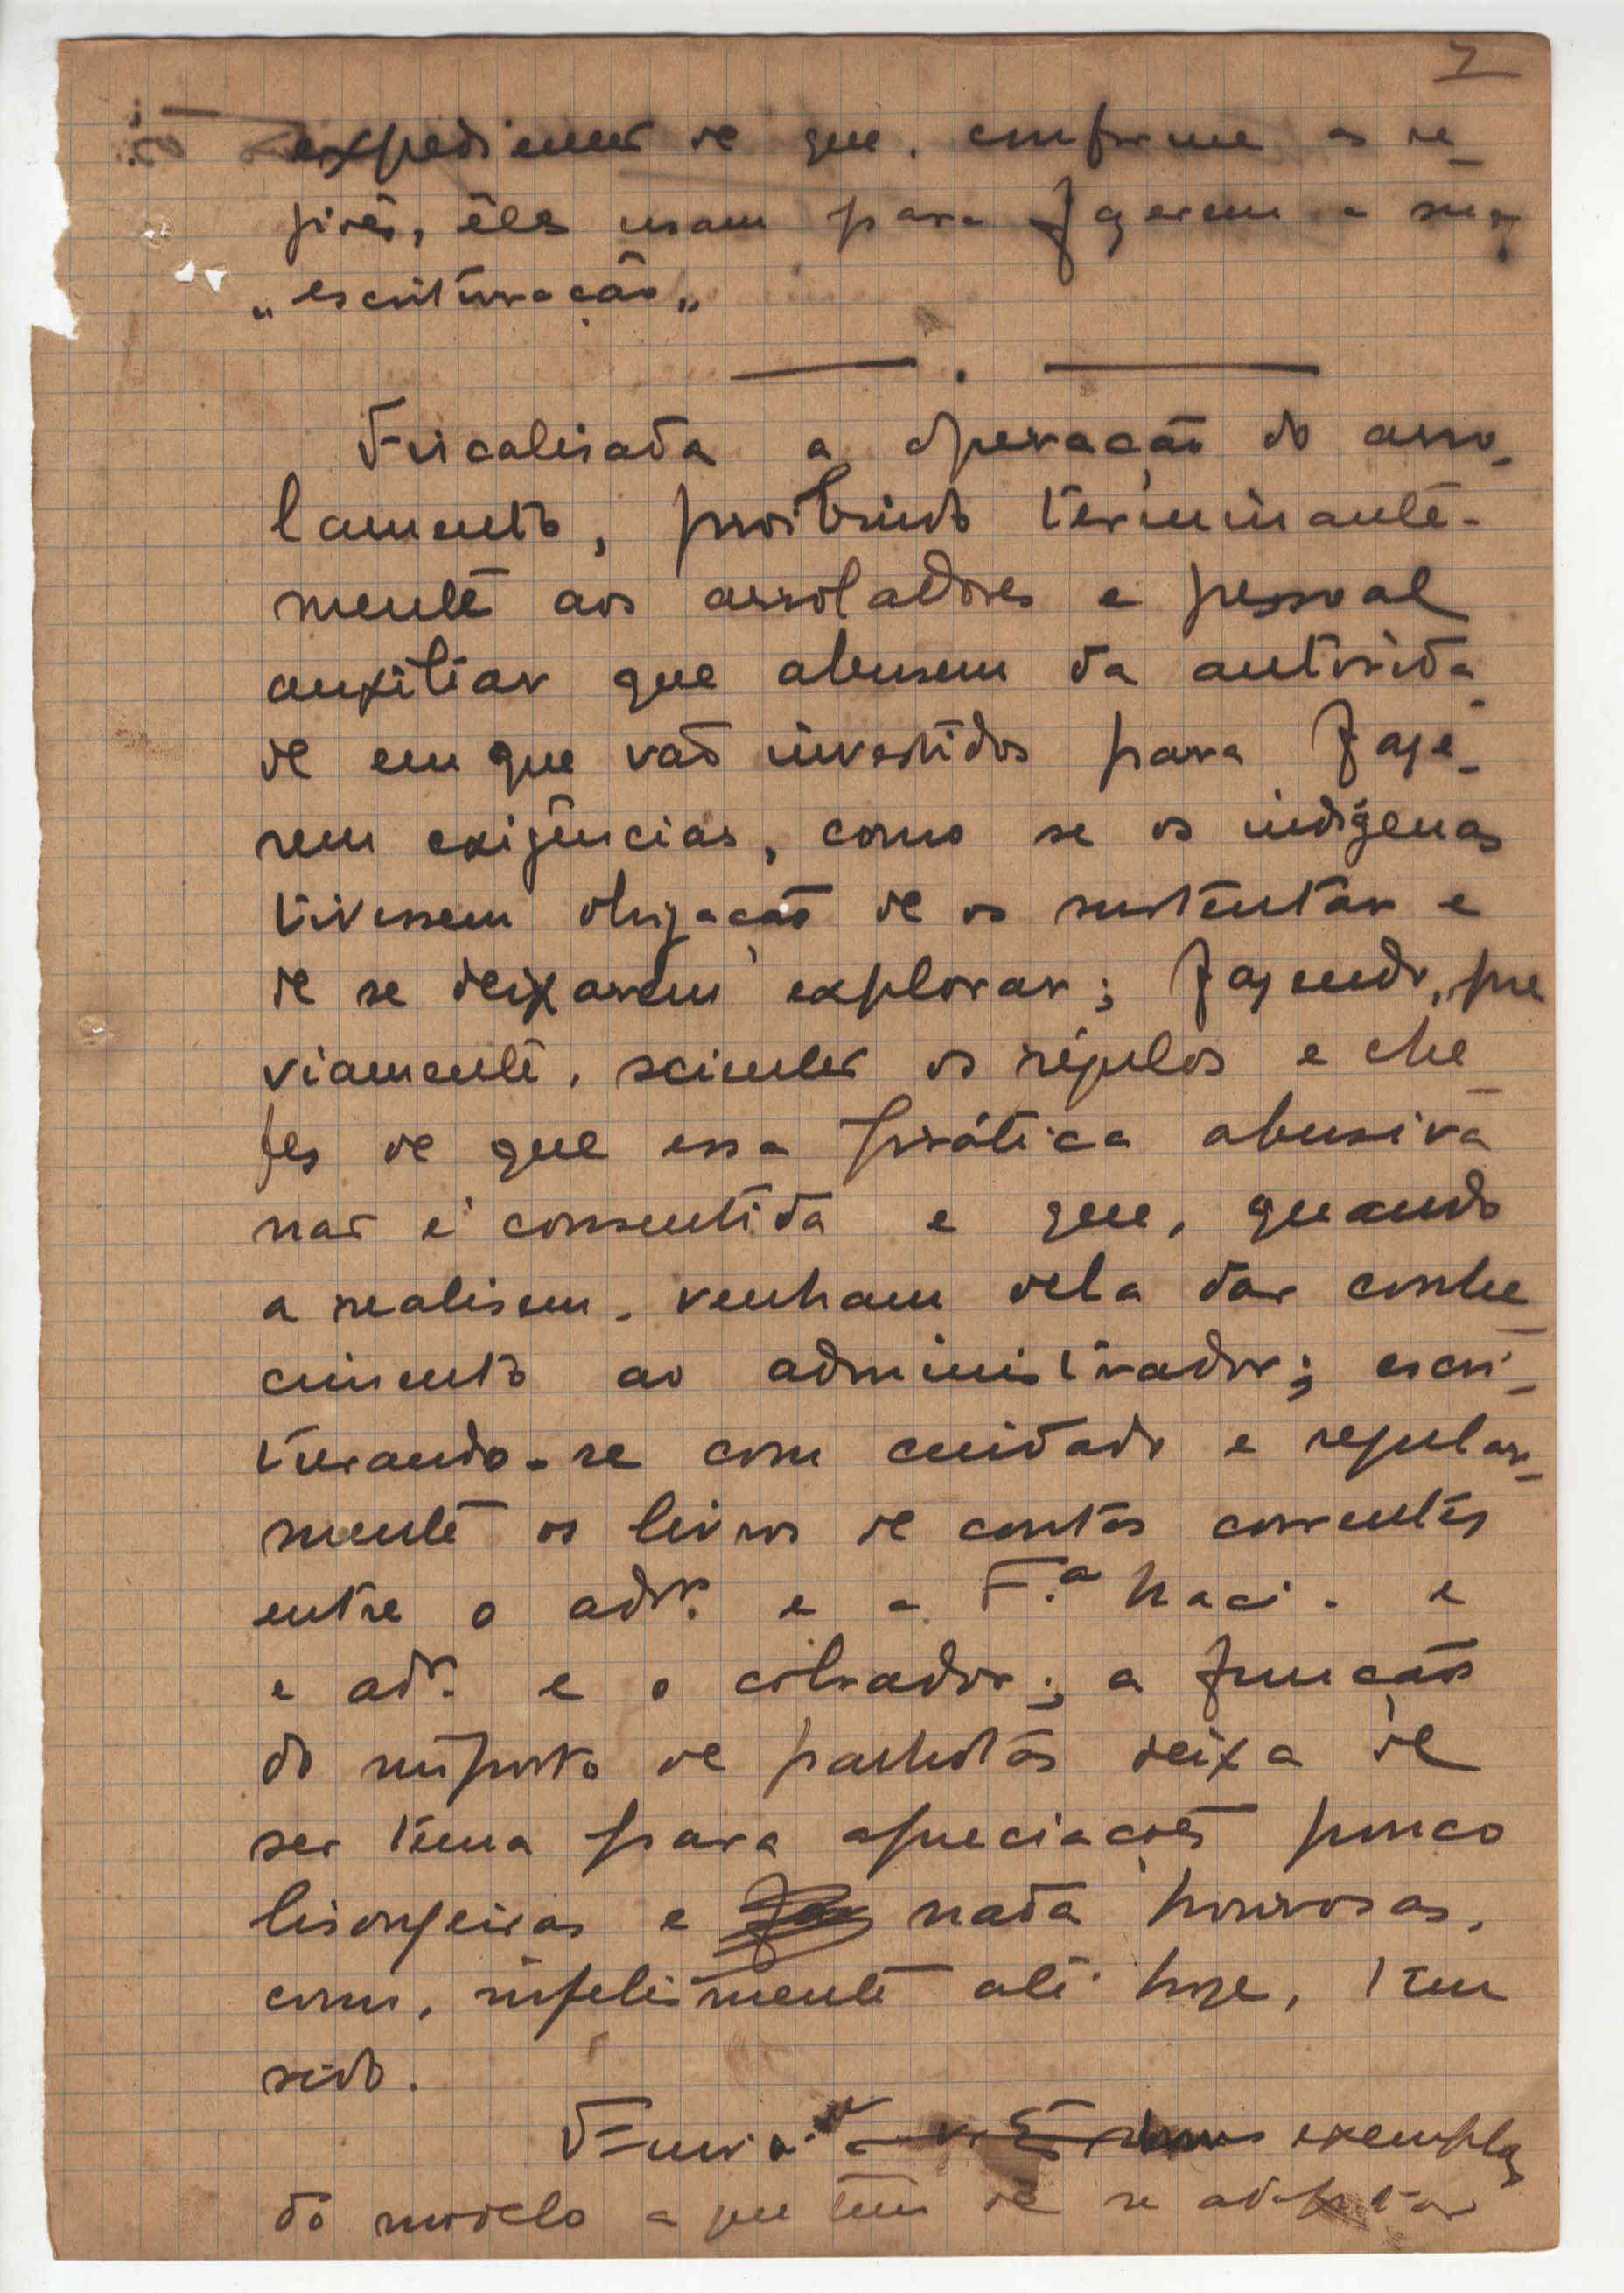 7
expedientes de que, conforme as re-
giões, êles usam para fazerem a sua
"escrituração"
Fiscalisada a operação do arro-
lamento, proibindo terminante-
mente aos arroladores e pessoal
auxiliar que abusem da autorida-
de em que vão investidos para faze-
rem exigências, como se os indígenas
tivessem obrigação de os sustentar e
de se deixarem explorar; fazendo, pre
viamente, scientes os régulos e che-
fes de que essa prática abusiva
não é consentida e que, quando
a realisem, venham dela dar conhe-
cimento ao administrador; escri-
turando-se com cuidado e regular-
mente os livros de contas correntes
entre o adr. e a F.ª Naci. e
e adr. e o cobrador; a função
do imposto de palhotas deixa de
ser tema para apreciações pouco
lisongeiras e nada honrosas,
como, infelismente até hoje, tem
sido.
exemplar
do modelo a que tem de se adaptar